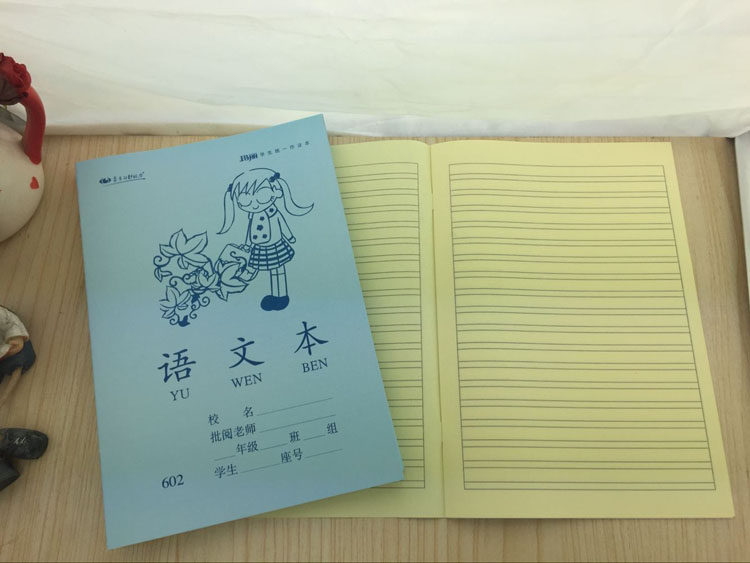 学生统一作业本
语 文 本
YU WEN BEN
校 名
批阅老师
年级 班 组
学生 座号
602